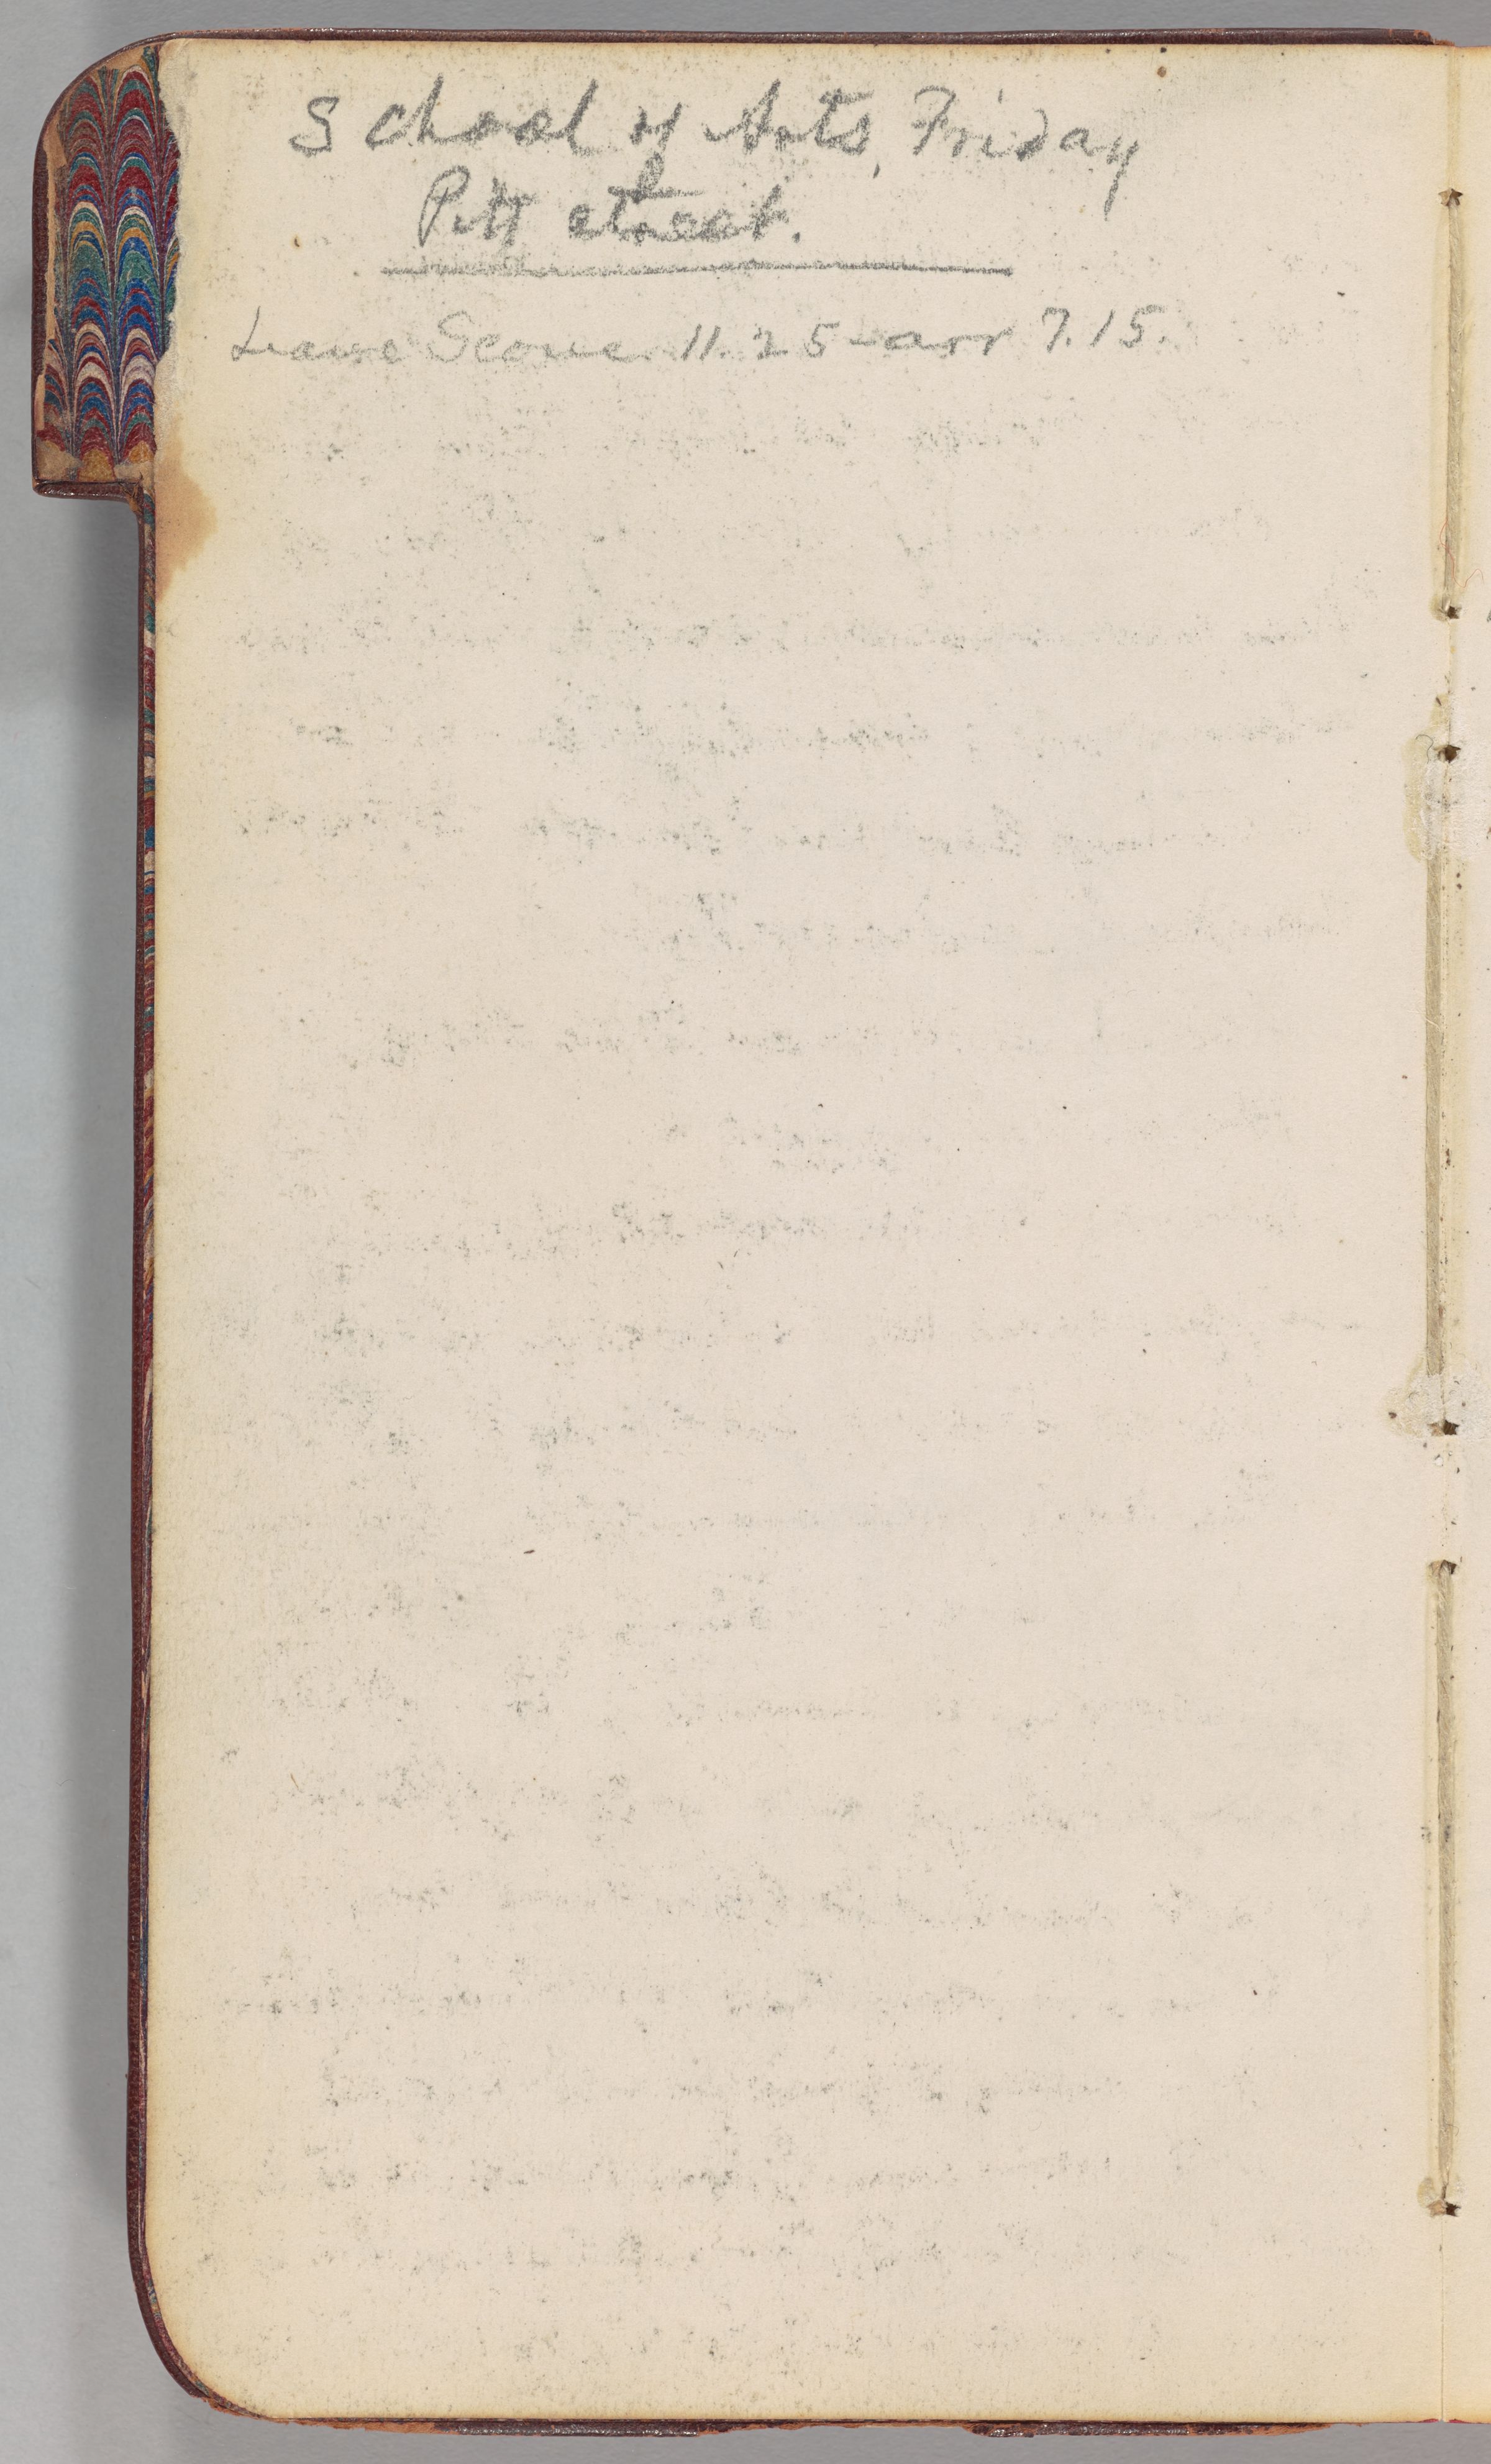 School of Arts, Friday
Pitt street.
Leave Scone 11.25 - arr 7.15.